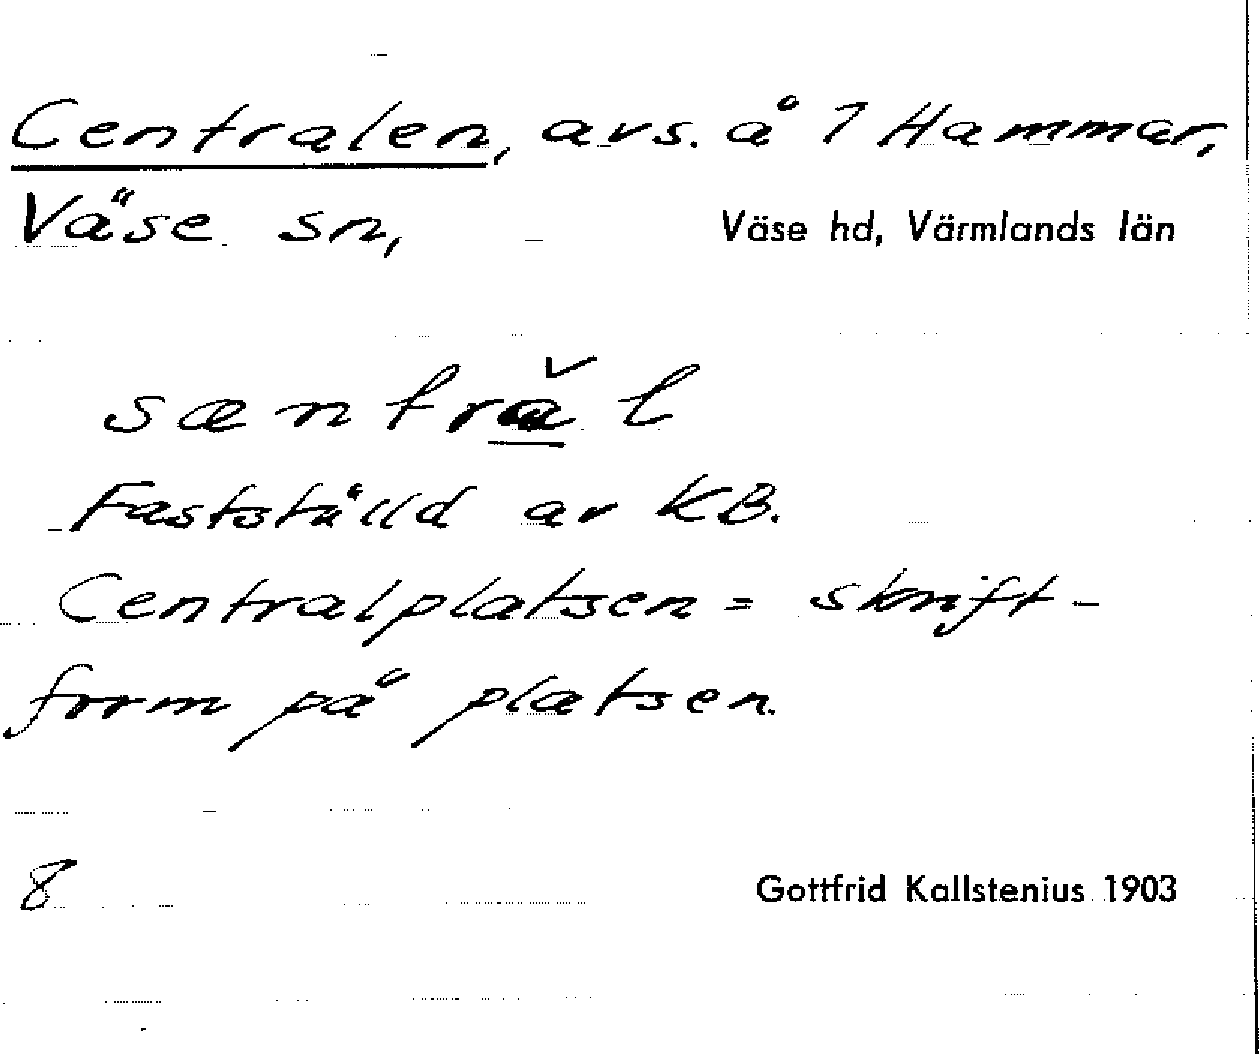 Centralen, avs. å 1 Hammar,
Väse sn, Väse hd, Värmlands län
sæntrǎl
Fastställd av KB.
Centralplatsen = skrift-
form på platsen.
8 Gottfrid Kallstenius 1903